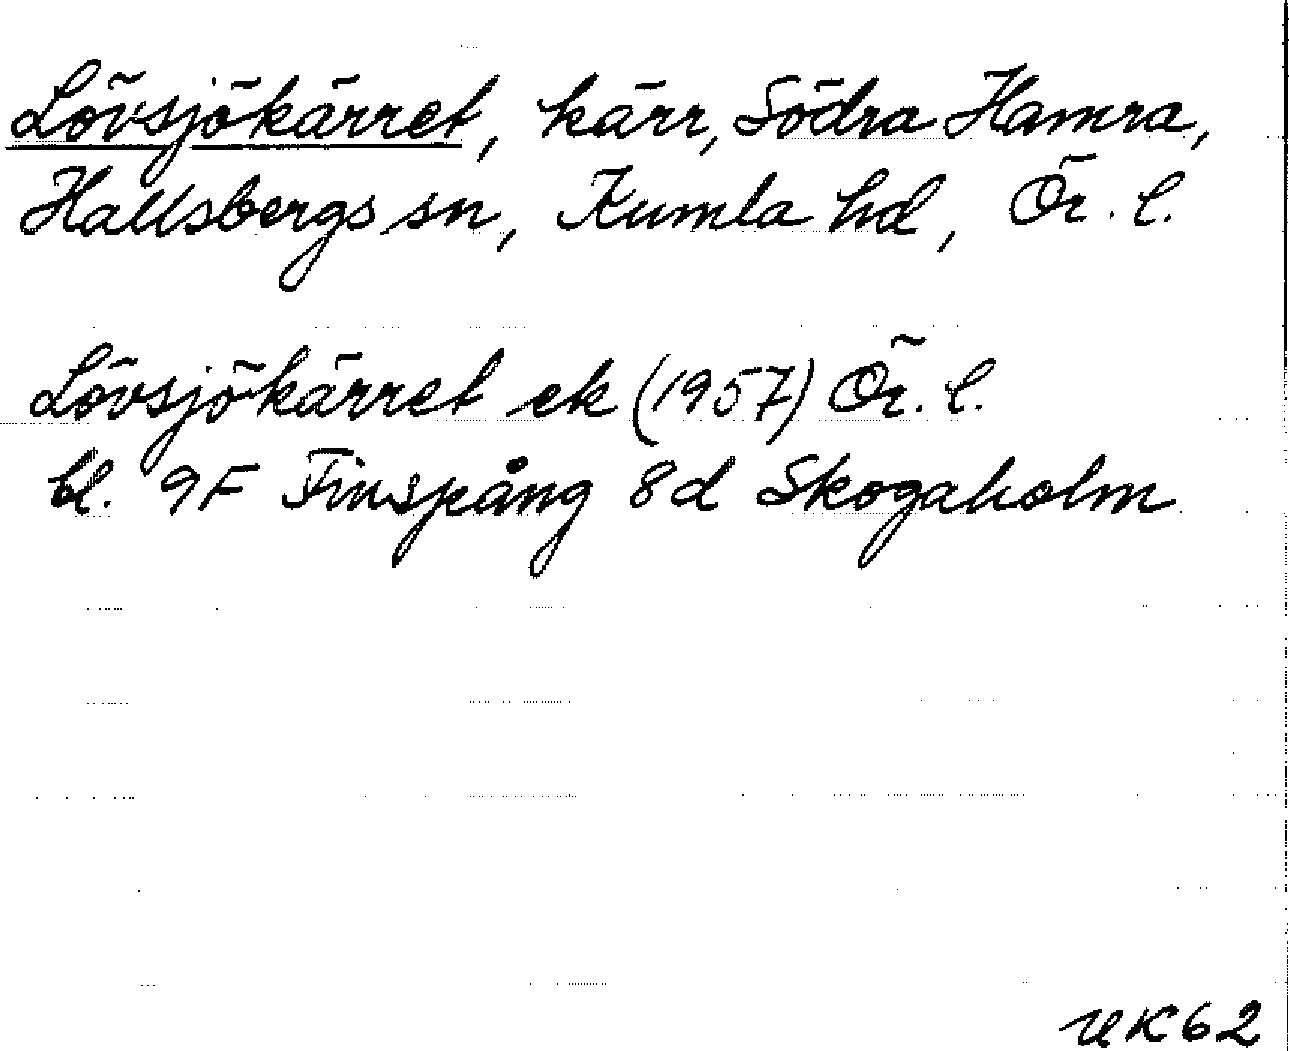 Lövsjökärret, kärr, Södra Hamra,
Hallsbergs sn, Kumla hd, Ör. l.
Lövsjökärret ek (1957) Ör. l.
bl. 9F Finspång 8d Skogaholm
UK62